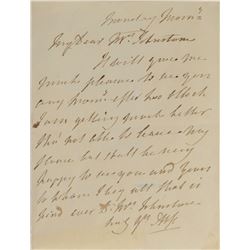 Monday Morng
My Dear Mrs Johnstone
It will give me
much pleasure to see you
any morng after two o'clock
I am getting much better
tho' not able to leave my
but shall be very
happy to see you and yours
to whom I beg all that is
kind ever Dr Mrs Johnstone